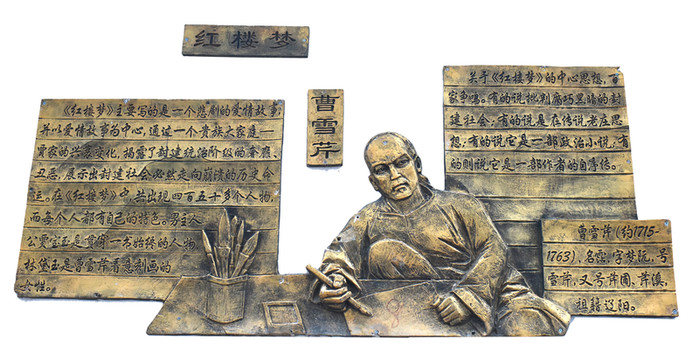 红楼梦
曹雪芹
《红楼梦》主要写的是一个悲剧的爱情故事,
并以爱情故事为中心,通过一个贵族大家庭—
贾家的兴衰变化,揭露了封建统治阶级的奢靡、
丑恶,展示出封建社会必然走向崩溃的历史命
运。在《红楼梦》中,共出现四百五十多个人物,
而每个人都有自己的特色。男主人
公贾宝玉是贯彻一书始终的人物
林黛玉是曹雪芹着意刻画的
女性。
关于《红楼梦》的中心思想,百
家争鸣。有的说批判腐朽黑暗的封
建社会;有的说是在传说老庄思
想;有的说它是一部政治小说;有
的则说它是一部作者的自序传。
曹雪芹(约1715-
1763),名霑,字梦阮,号
雪芹,又号芹圃、芹溪,
祖籍辽阳。